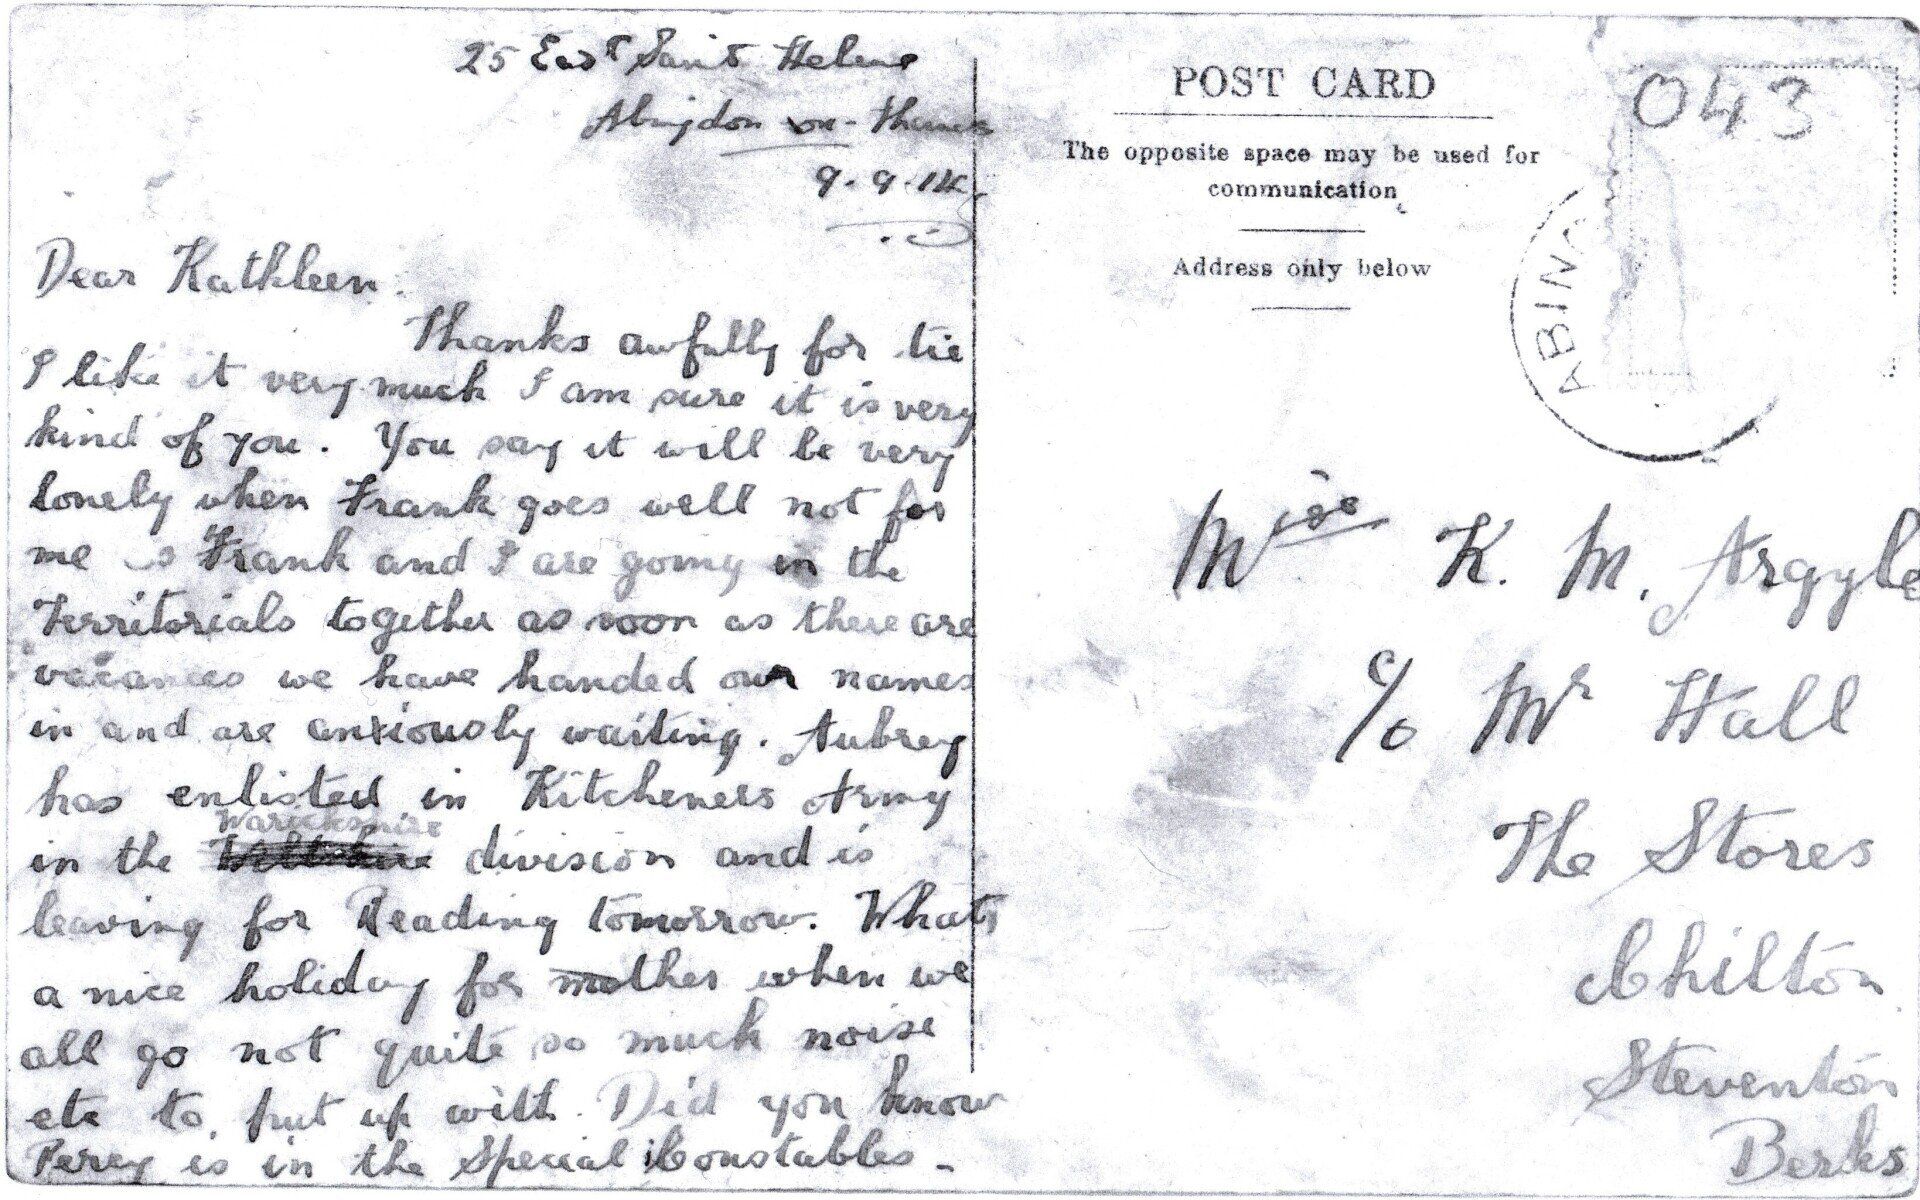 25 East Saint Helens
Abingdon-on-Thames
9.9.14
Dear Kathleen.
Thanks awfully for tie
I like it very much I am sure it is very
kind of you. You say it will be very
lonely when Frank goes well not for
me as Frank and I are going in the
Territorials together as soon as there are
vacances we have handed our names
in and are anxiously waiting. Aubrey
has enlisted in Kitcheners Army
Warickshire
in the division and is
leaving for Reading tomorrow. What
a nice holiday for mother when we
all go not quite so much noise
etc to put up with. Did you know
Percy is in the Special Constables -
POST CARD
The opposite space may be used for
communication
Address only below
043
ABIN
Miss K. M. Argyle
c/o Mr Hall
The Stores
Chilton
Steventon
Berks